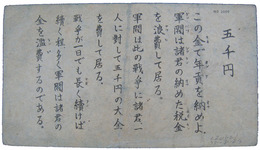 五千円
この金で年貢を納めよ
軍閥は諸君の納めた税金
を浪費して居る。
軍閥は此の戦争に諸君一
人に対して五千円の大金
を費して居る。
戦争が一日でも長く續けば
續く程多く軍閥は諸君の
金を浪費するのである。